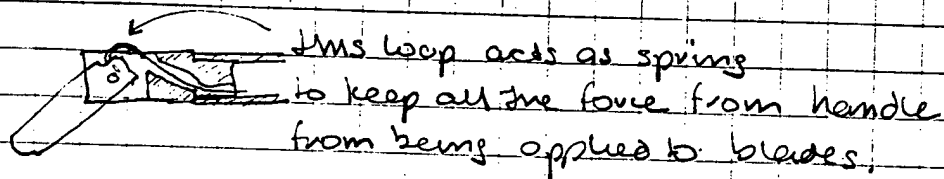 this loop acts as spring
to keep all the force from handle
from being applied to blades.